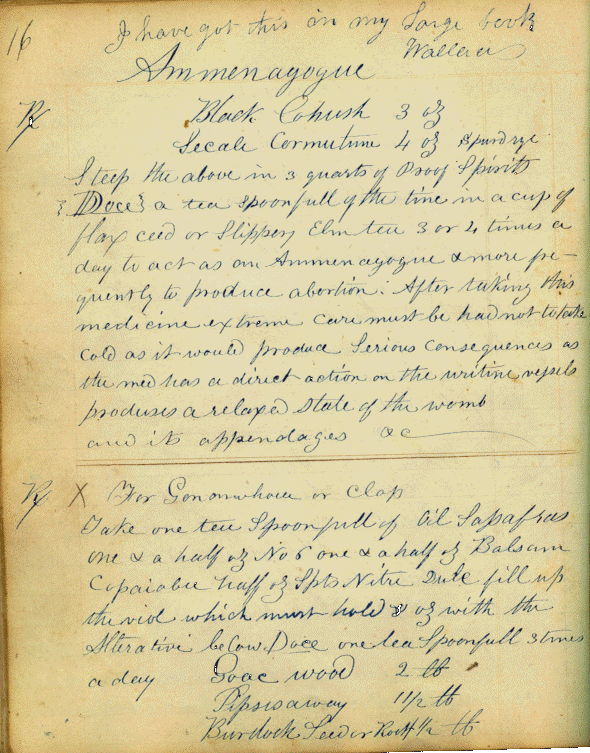 16
I have got this in my Large book
Wallace
Ammenagogue
Rx
Black Cohush 3 oz
Secale Cormutum 4 oz Spurd rye
Steep the above in 3 quarts of Proof Spirits
Doce a tea spoonfull of the tinc in a cup of
flax ceed or Slippery Elm tea 3 or 4 times a
day to act as an Ammenagogue & more fre-
quently to produce abortion. After taking this
medicine extreme care must be had not to take
cold as it would produce Serious Consequences as
the med has a direct action on the uritine vessels
produses a relaxed State of the womb
and its appendages &c
Rx X For Gonorrhoea or Clap
Take one tea Spoonfull of Oil Sassafras
one & a half oz No 6 one & a half oz Balsam
Copaiabae half oz Spts Nitre Dulc fill up
the viol which must hold 8 oz with the
Alterative below. Doce one tea Spoonfull 3 times
a day Goac wood 2 lb
Pipsisaway 1 1/2 lb
Burdock Seed or Root 1/2 lb